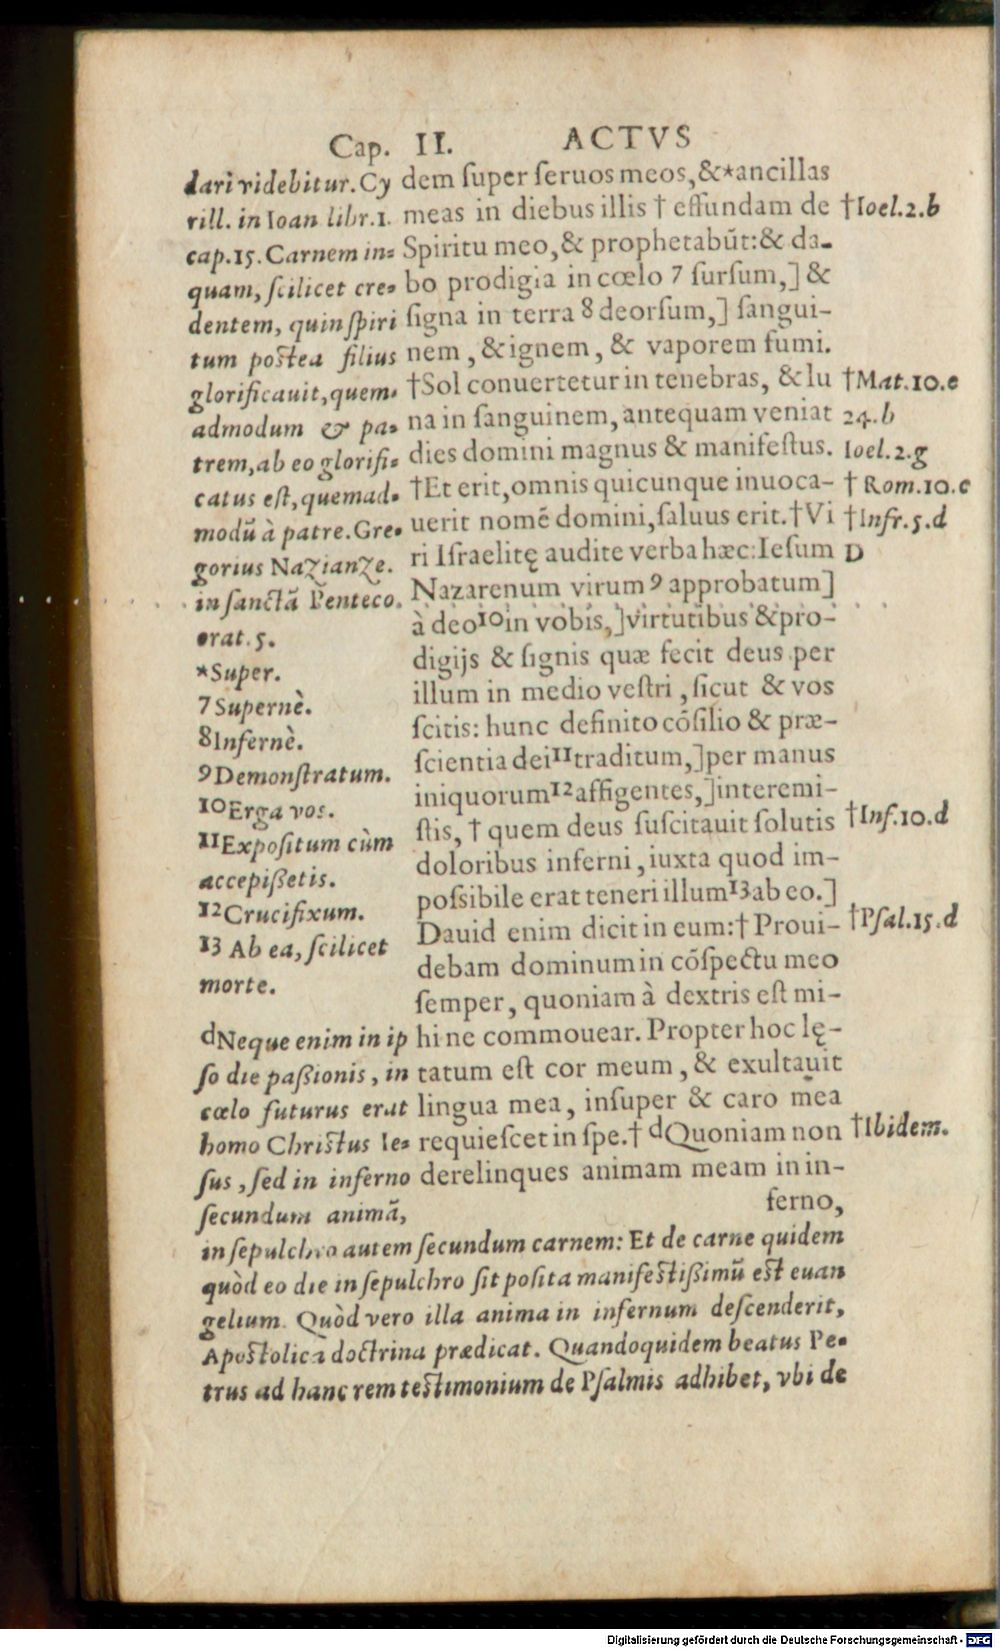 Cap. II. ACTVS
dari videbitur. Cy
rill. in Ioan libr.1.
cap.15. Carnem in-
quam, ſcilicet cre-
dentem, quin ſpiri
tum poſtea filius
glorificauit, quem-
admodum & pa-
trem, ab eo glorifi-
catus eſt, quemad-
modũ à patre. Gre-
gorius Nazianze.
in ſanctã Penteco.
orat. 5.
*Super.
7 Supernè.
8 Infernè.
9 Demonſtratum.
10 Erga vos.
11 Expoſitum cùm
accepißetis.
12 Crucifixum.
13 Ab ea, ſcilicet
morte.
d Neque enim in ip
ſo die paßionis, in
cœlo futurus erat
homo Chriſtus Ie-
ſus, ſed in inferno
ſecundum animã,
dem ſuper ſeruos meos, &*ancillas
meas in diebus illis † effundam de
Spiritu meo, & prophetabũt: & da-
bo prodigia in cœlo 7 ſurſum,] &
ſigna in terra 8 deorſum,] ſangui-
nem, & ignem, & vaporem fumi.
†Sol conuertetur in tenebras, & lu
na in ſanguinem, antequam veniat
dies domini magnus & manifeſtus.
†Et erit, omnis quicunque inuoca-
uerit nomẽ domini, ſaluus erit. † Vi
ri Iſraelitę audite verba hæc: Ieſum
Nazarenum virum 9 approbatum]
à deo 10 in vobis,] virtutibus & pro-
digijs & ſignis quæ fecit deus per
illum in medio veſtri, ſicut & vos
ſcitis: hunc definito cõſilio & præ-
ſcientia dei 11 traditum,] per manus
iniquorum 12 affigentes,] interemi-
ſtis, † quem deus ſuſcitauit ſolutis
doloribus inferni, iuxta quod im-
poſsibile erat teneri illum 13 ab eo.]
Dauid enim dicit in eum: † Proui-
debam dominum in cõſpectu meo
ſemper, quoniam à dextris eſt mi-
hi ne commouear. Propter hoc lę-
tatum eſt cor meum, & exultauit
lingua mea, inſuper & caro mea
requieſcet in ſpe. † d Quoniam non
derelinques animam meam in in-
ferno,
†Ioel.2.b
†Mat.10.e
24.b
Ioel.2.g
† Rom.10.c
†Infr.5.d
D
†Inf.10.d
†Pſal.15.d
†Ibidem.
in ſepulchro autem ſecundum carnem: Et de carne quidem
quòd eo die in ſepulchro ſit poſita manifeſtißimũ eſt euan
gelium. Quòd vero illa anima in infernum deſcenderit,
Apoſtolica doctrina prædicat. Quandoquidem beatus Pe-
trus ad hanc rem teſtimonium de Pſalmis adhibet, vbi de
Digitalisierung gefördert durch die Deutsche Forschungsgemeinschaft - DFG